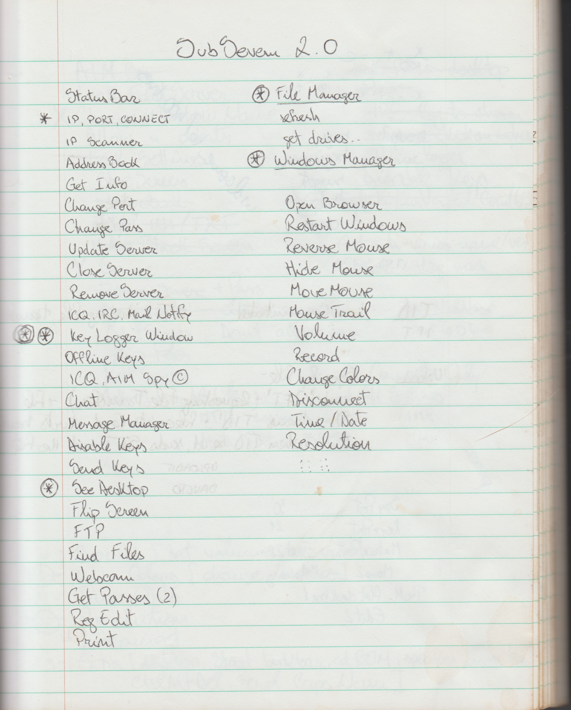 SubSeven 2.0
Status Bar
* IP, PORT, CONNECT
IP Scanner
Address Book
Get Info
Change Port
Change Pass
Update Server
Close Server
Remove Server
ICQ, IRC, Mail Notify
* * Key Logger Window
Offline Keys
ICQ, AIM Spy ©
Chat
Message Manager
Disable Keys
Send Keys
* See Desktop
Flip Screen
FTP
Find Files
Webcam
Get Passes (2)
Reg Edit
Print
* File Manager
refresh
get drives..
* Windows Manager
Open Browser
Restart Windows
Reverse Mouse
Hide Mouse
Move Mouse
Mouse Trail
Volume
Record
Change Colors
Disconnect
Time / Date
Resolution